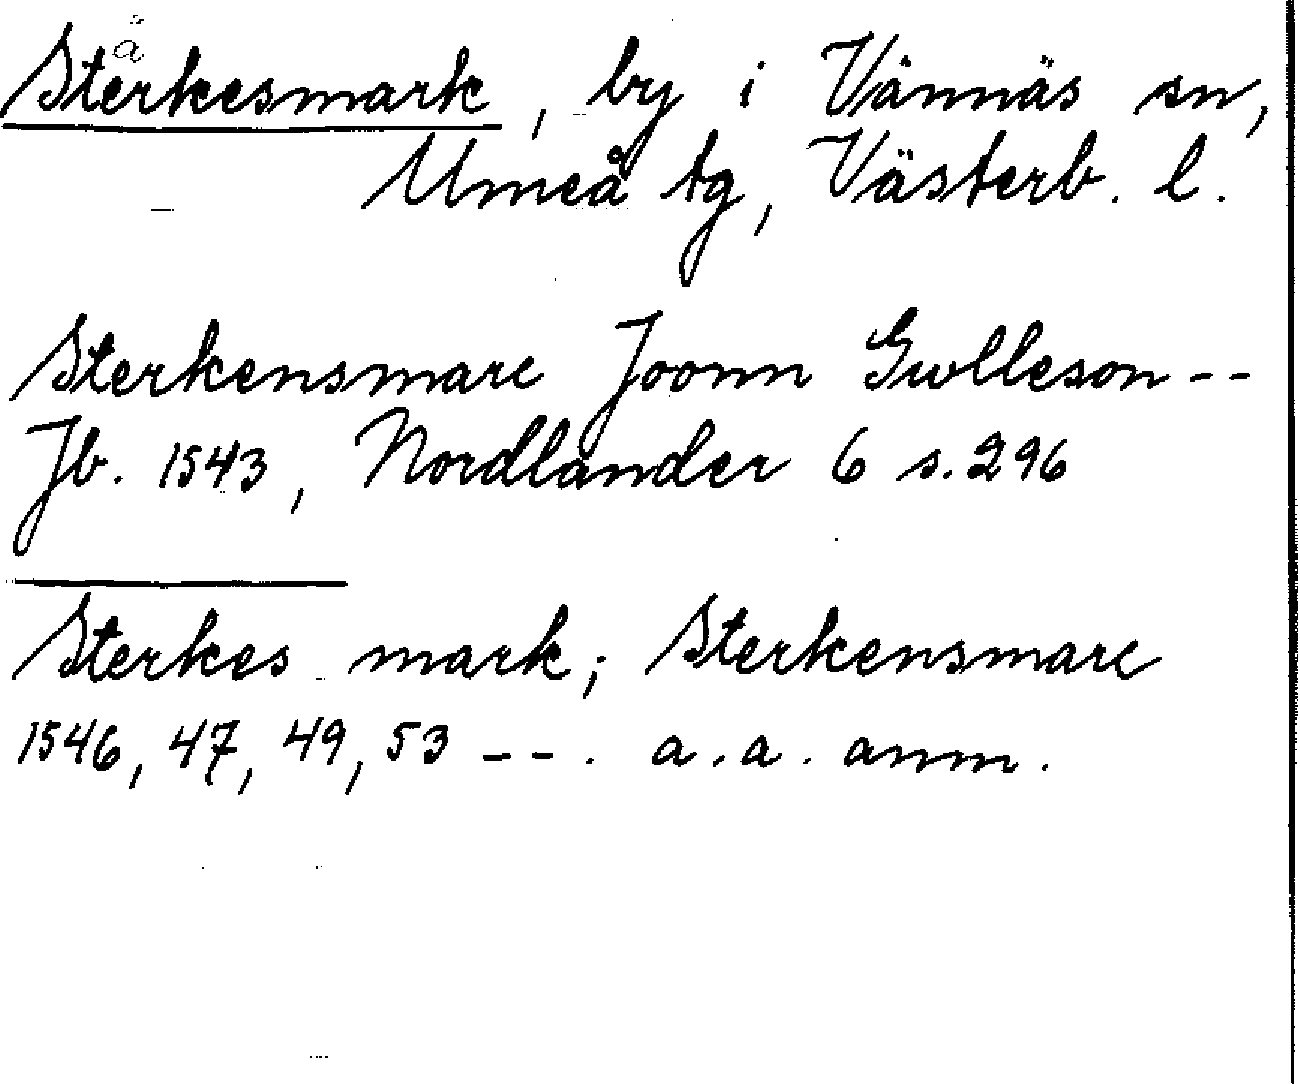 ä
Sterkesmark, by i Vännäs sn,
Umeå tg, Västerb. l.
Sterkensmarc Joonn Gulleson --
Jb. 1543, Nordlander 6 s. 296
Sterkes mark; Sterkensmarc
1546, 47, 49, 53 --. a.a. anm.